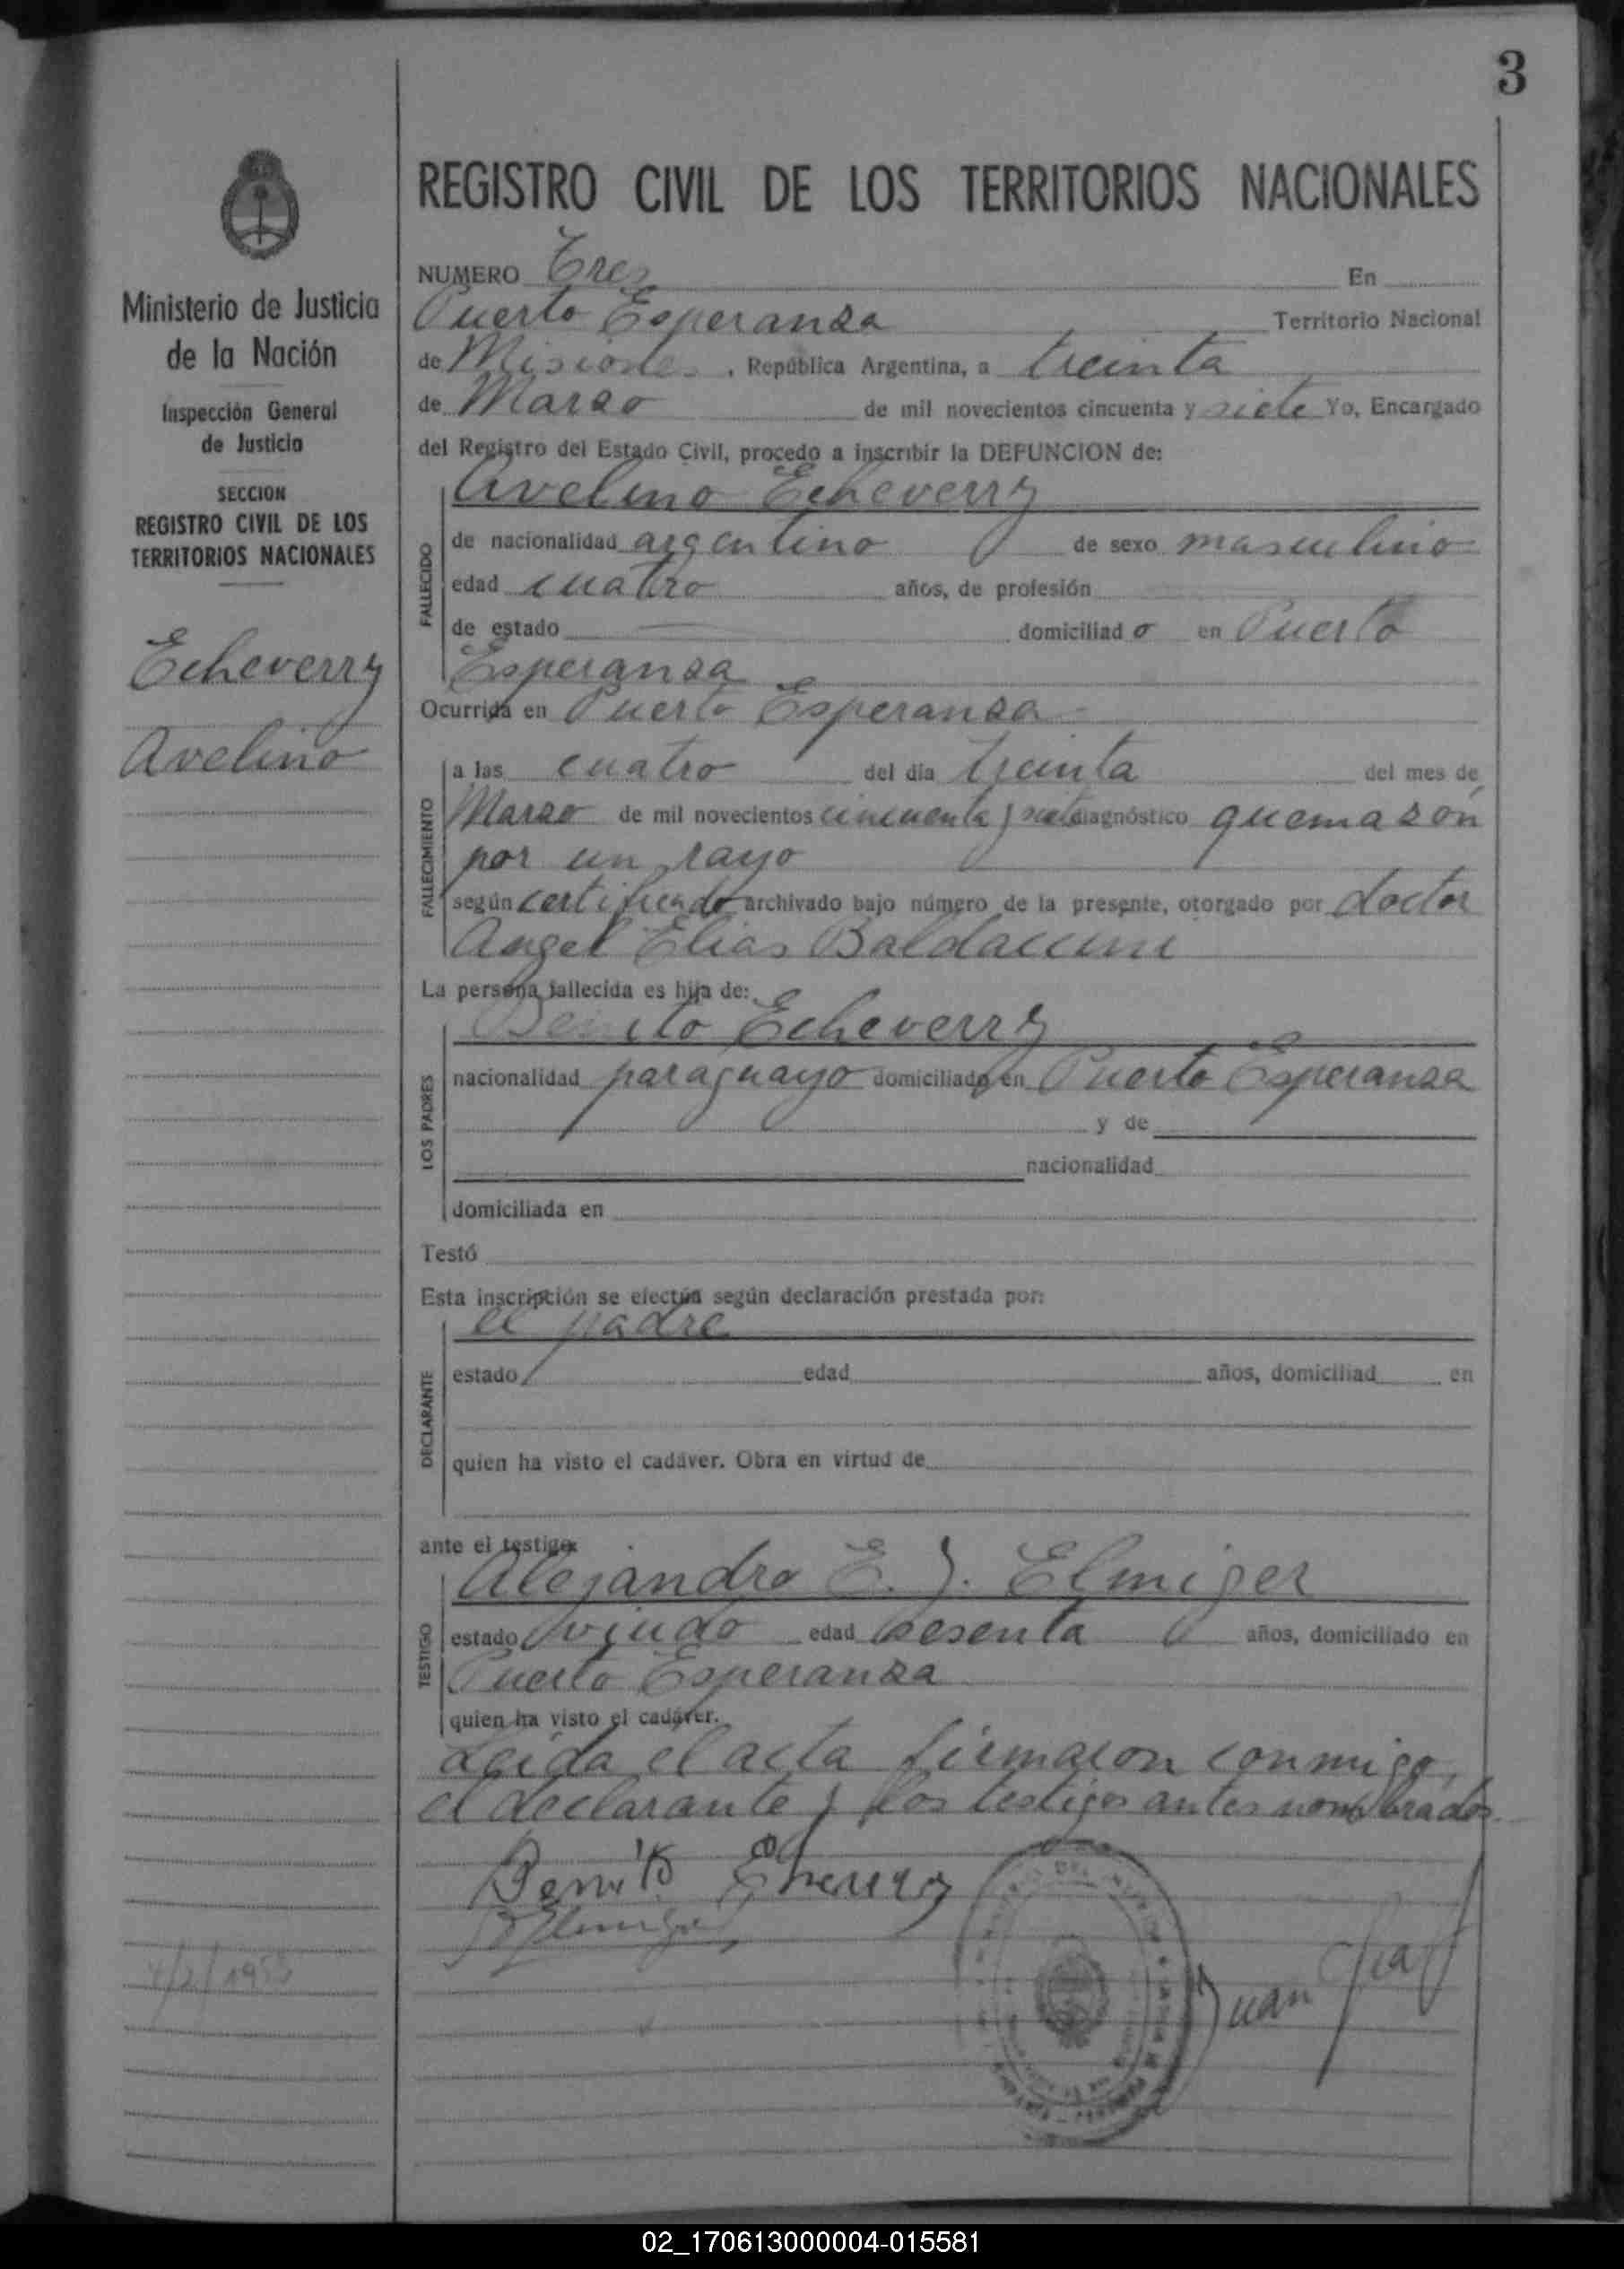 3
Ministerio de Justicia
de la Nación
Inspección General
de Justicia
SECCION
REGISTRO CIVIL DE LOS
TERRITORIOS NACIONALES
Echeverry
Avelino
REGISTRO CIVIL DE LOS TERRITORIOS NACIONALES
NUMERO Tres En
Puerto Esperanza Territorio Nacional
de Misiones, República Argentina, a treinta
de Marzo de mil novecientos cincuenta y siete Yo, Encargado
del Registro del Estado Civil, procedo a inscribir la DEFUNCION de:
FALLECIDO
Avelino Echeverry
de nacionalidad argentino de sexo masculino
edad cuatro años, de profesión
de estado domiciliado en Puerto
Esperanza
Ocurrida en Puerto Esperanza
FALLECIMIENTO
a las cuatro del día treinta del mes de
Marzo de mil novecientos cincuenta y siete diagnóstico quemazón
por un rayo
según certificado archivado bajo número de la presente, otorgado por doctor
Angel Elias Baldaccini
La persona fallecida es hija de:
LOS PADRES
Benito Echeverry
nacionalidad paraguayo domiciliado en Puerto Esperanza
y de
nacionalidad
domiciliada en
Testó
Esta inscripción se efectúa según declaración prestada por:
DECLARANTE
el padre
estado edad años, domiciliad en
quien ha visto el cadáver. Obra en virtud de
ante el testigo:
TESTIGO
Alejandro E. J. Elmiger
estado viudo edad sesenta años, domiciliado en
Puerto Esperanza
quien ha visto el cadáver.
Leída el acta firmaron conmigo,
el declarante y los testigos antes nombrados.
Benito Echeverry
Juan
02_170613000004-015581